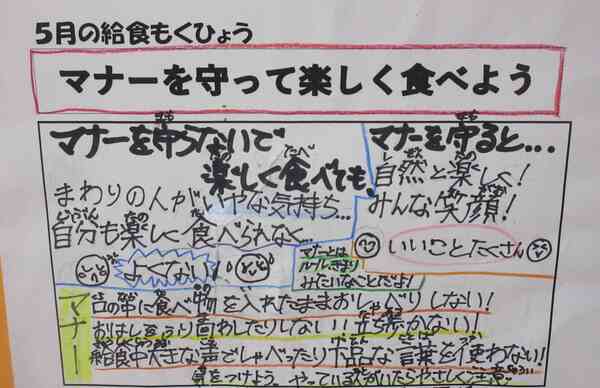 5月の給食もくひょう
マナーを守って楽しく食べよう
マナーを守らないで
楽しく食べても、
まわりの人がいやな気持ち…
自分も楽しく食べられなく…
よくない!
マナーを守ると…
自然と楽しく!
みんな笑顔!
いいことたくさん
マナーとは
ルールきまり
みたいなことだよ!
マナー
口の中に食べ物を入れたままおしゃべりしない!
おはしをふり回わしたりしない!!立ち歩かない!
給食中大きな声でしゃべったり下品な言葉を使わない!
気をつけよう。やっている人がいたらやさしく注意